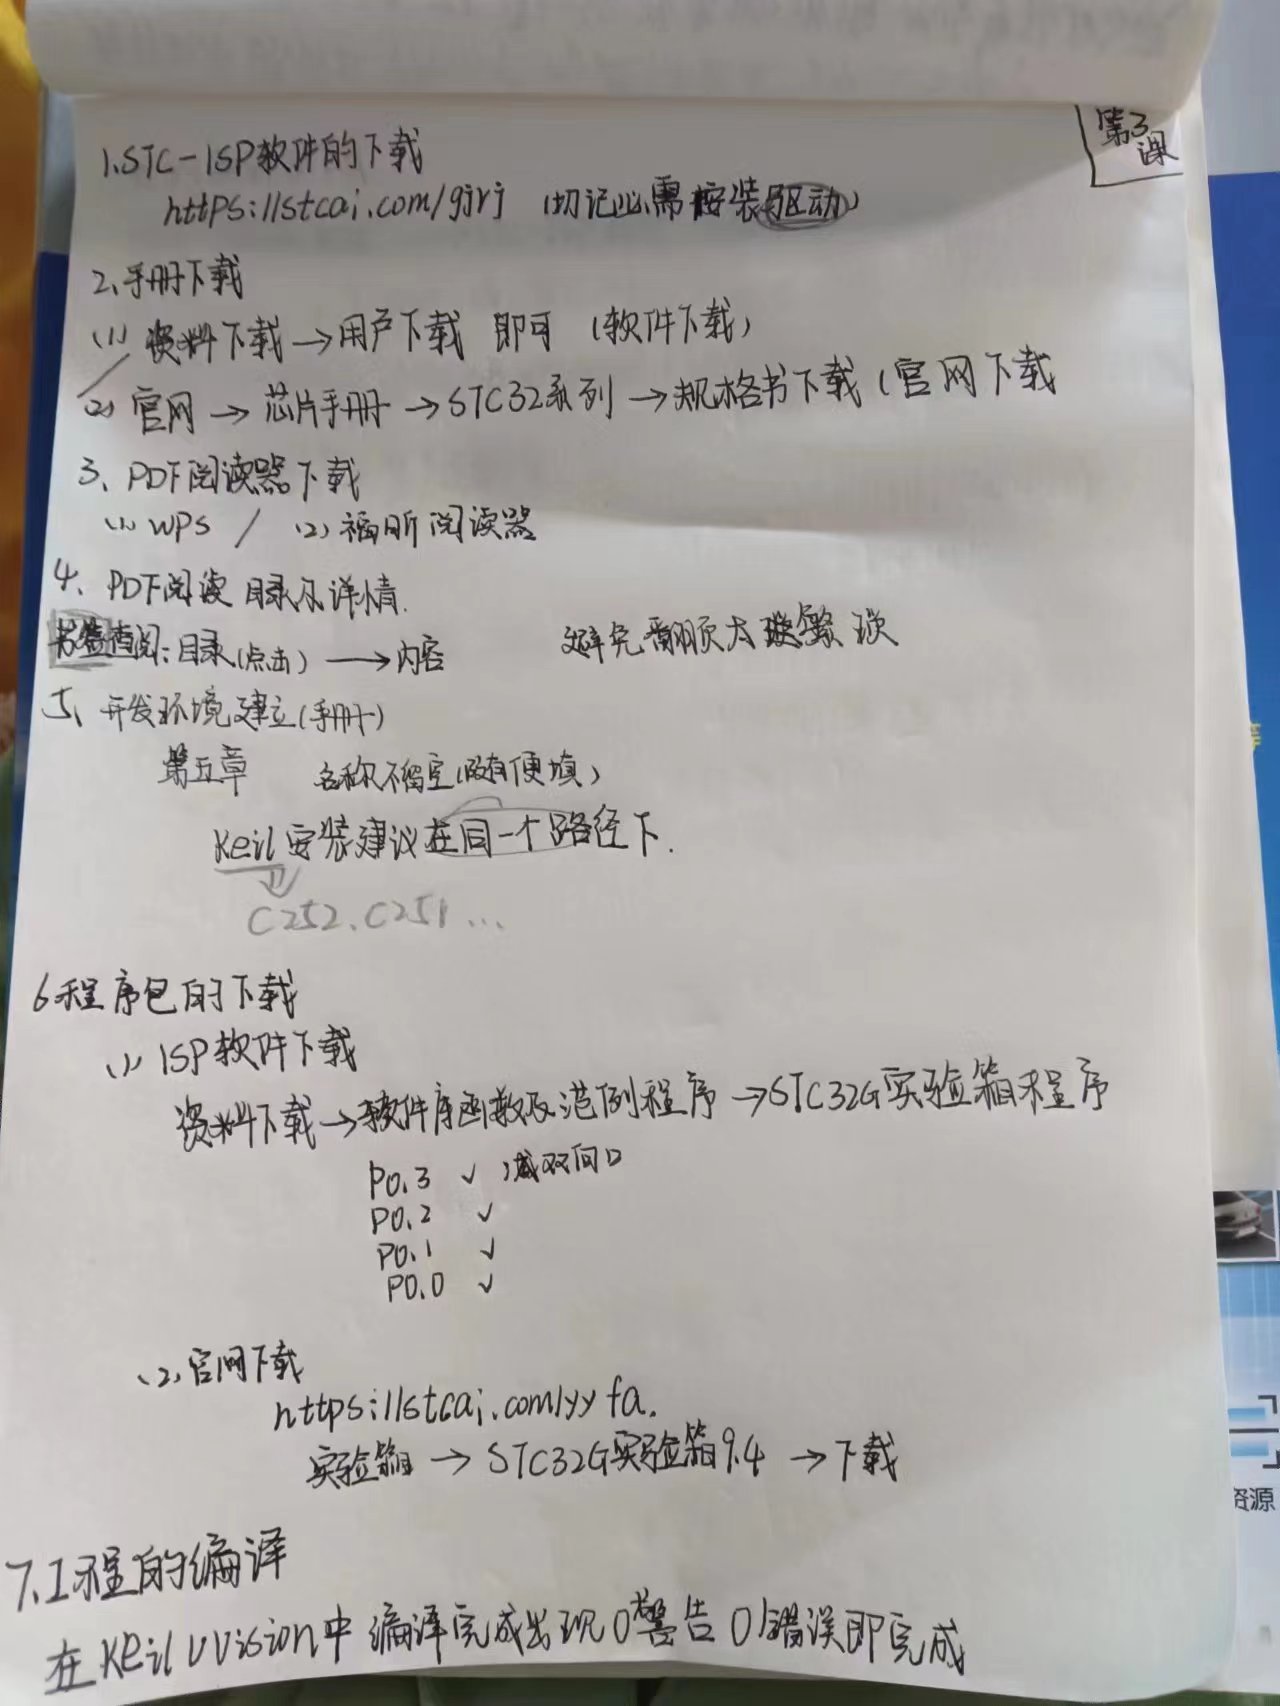 第3
课
1.STC-ISP软件的下载
https://stcai.com/gjrj (切记必需按装驱动)
2、手册下载
(1) 资料下载→用户下载 即可 (软件下载)
(2) 官网→芯片手册→STC32系列→规格书下载(官网下载
3、PDF阅读器下载
(1) WPS / (2) 福昕阅读器
4、PDF阅读 目录及详情.
书签查阅:目录(点击)→内容 避免翻页太繁琐
5、开发环境建立(手册)
第五章 名称不留空(随便填)
Keil安装建议在同一个路径下.
C252、C251…
6程序包的下载
(1) ISP软件下载
资料下载→软件库函数及范例程序→STC32G实验箱程序
P0.3 ✓ 准双向口
P0.2 ✓
P0.1 ✓
P0.0 ✓
(2)官网下载
https://stcai.com/yyfa.
实验箱→STC32G实验箱9.4→下载
7.工程的编译
在Keil uVision中编译完成出现0警告0错误即完成
资源